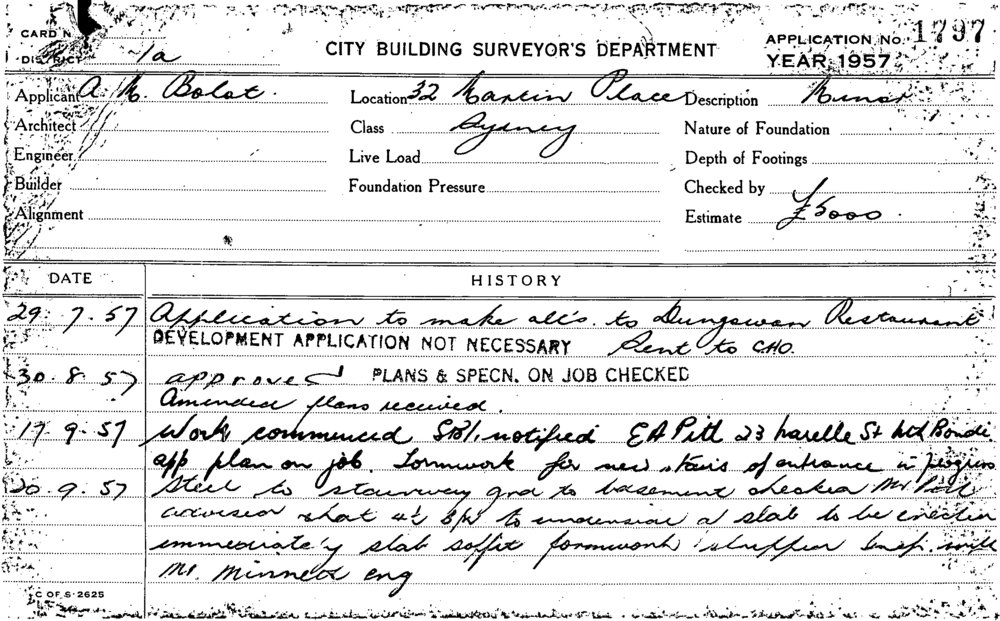 CARD N
DISTRICT 1a
CITY BUILDING SURVEYOR'S DEPARTMENT
APPLICATION No. 1797
YEAR 1957
Applicant A. M. Bolot. Location 32 Martin Place Description Minor
Architect Class Sydney Nature of Foundation
Engineer Live Load Depth of Footings
Builder Foundation Pressure Checked by
Alignment Estimate £5000.
DATE HISTORY
29. 7. 57 Application to make alt's. to Dungowan Restaurant
DEVELOPMENT APPLICATION NOT NECESSARY Sent to CHO.
30. 8. 57 approved PLANS & SPECN. ON JOB CHECKED
Amended plans received.
17. 9. 57 Work commenced notified E A Pitt 23 St Bondi
app plan on job. Formwork for new stairs of entrance in progress
20. 9. 57 Steel to stairway grd to basement checked Mr. Pitt
advised that to underside of slab to be erected
immediately slab soffit formwork stripped
Mr. Minnett eng
C OF S-2625